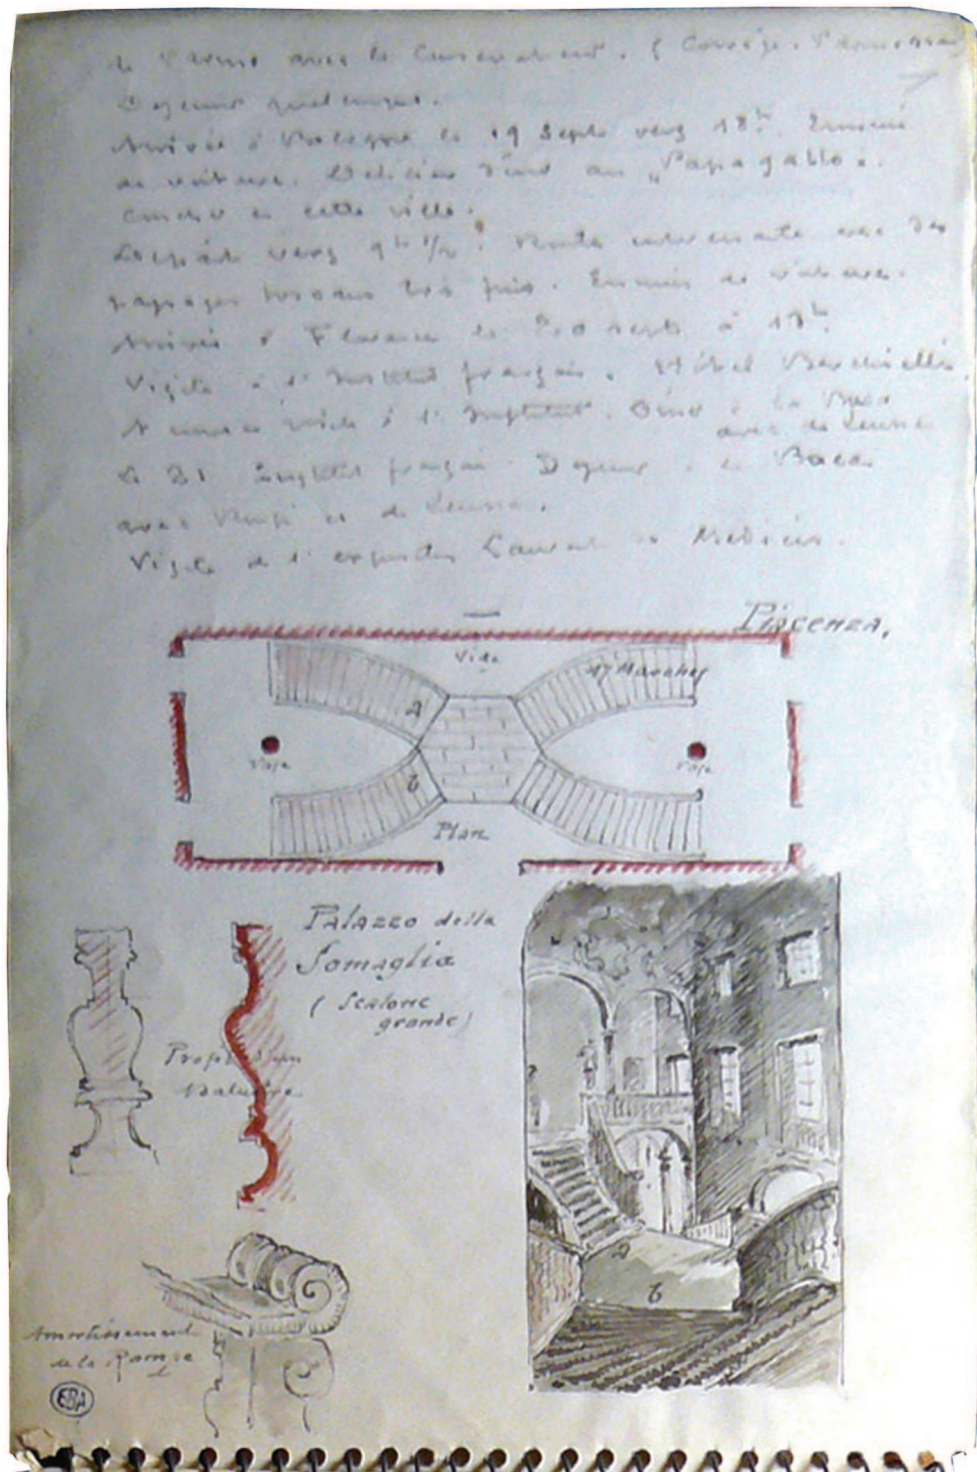 de Parme avec le Conservateur. (Corrège. Parmesan
Dejeuner quelconque.
Arrivée à Bologne le 19 Septe vers 18h. Ennuis
de voiture. Délicieux diner au "Papagallo".
Coucher en cette ville.
Départ vers 9h 1/2. Route interessante avec des
paysages toscans très fins. Ennuis de voiture.
Arrivée à Florence le 20 septe à 13h
Visite à l'Institut français. Hôtel Berchielli.
visite à l'Institut. Diner à la Buca
avec de Leusse
Le 21 Institut français. Dejeuner à la Buca
avec et de Leusse.
Visite de l'exposition Laurent de Medicis.
Piacenza.
Vide
17 Marches
A
Vase
Vase
B
Plan
Palazzo della
Somaglia
(Scalone
grande)
Profil d'un
Balustre
A
B
Amortissement
de la Rampe
EBA